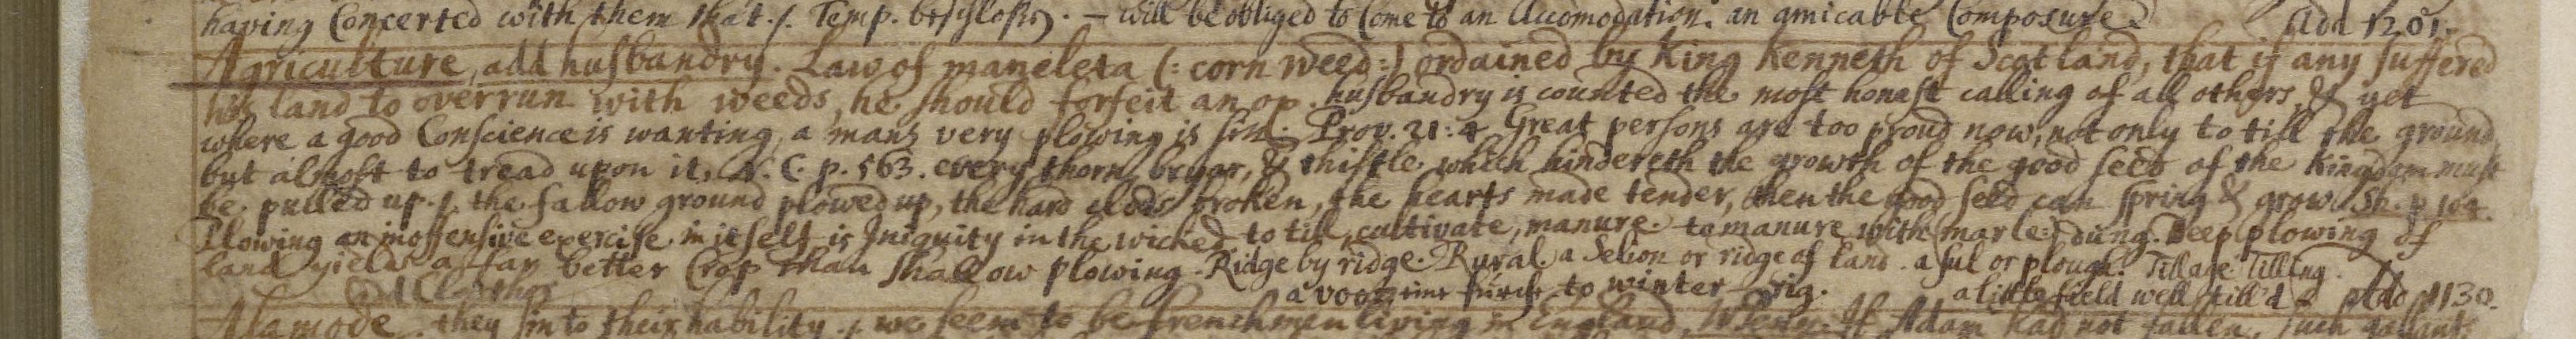 having Concerted with them that ./. Temp. — will be obliged to Come to an Accomodation. an amicable Composure Add 1201.
Agriculture, add husbandry. Law of maneleta (: corn weed :) ordained by King Kenneth of Scotland, that if any suffered
his land to overrun with weeds, he should forfeit an op. husbandry is counted the most honest calling of all others, & yet
where a good Conscience is wanting, a mans very plowing is sin. Prov. 21:4 Great persons are too proud now, not only to till the ground,
but almost to tread upon it, N. C. p. 563. every thorn, bryar, & thistle which hindereth the growth of the good seed of the Kingdom must
be pulled up ./. the fallow ground plowed up, the hard clods broken, the hearts made tender, then the good seed can spring & grow Sh. p 104.
Plowing an inoffensive exercise in itself is Iniquity in the wicked to till, cultivate, manure. to manure with (marle:) dung. Deep plowing of
land yields a far better Crop than shallow plowing. Ridge by ridge. Rural. a Selion or ridge of land. a sul or plough. Tillage Tilling.
add Clothes a to winter rig. a little field well till'd Add 1130.
Alamode. they sin to their hability ./. we seem to be frenchmen living in England. If Adam had not fallen, such gallant